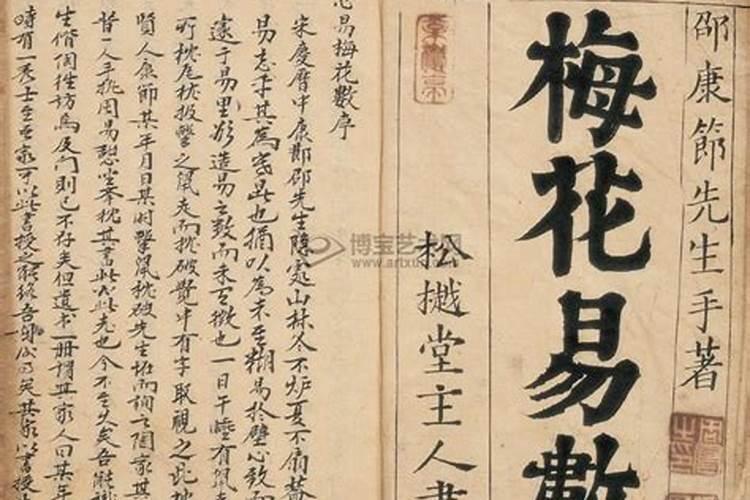 邵康節先生手著
梅花易數
松樾堂主人書
心易梅花數序
宋慶曆中康節邵先生隱處山林冬不炉夏不扇蓋
易忘乎其為寒暑也猶以為未至糊易於壁心致而
遂于易理欲造易之數而未有徵也一日午睡有鼠走
所枕瓦枕投擊之鼠走而枕破覺中有字取視之此枕
賢人康節某年月日某時擊鼠枕破先生怪而詢之陶家其
昔一人手執周易憩坐舉枕其書此必此老也今不至久矣吾能識
生偕陶往訪焉及門則已不存矣但遺书一册謂其家人曰某年
時有一秀士至吾家可以此書授之能終吾身後事矣其家以書授
博宝艺术网
www.artxun.com